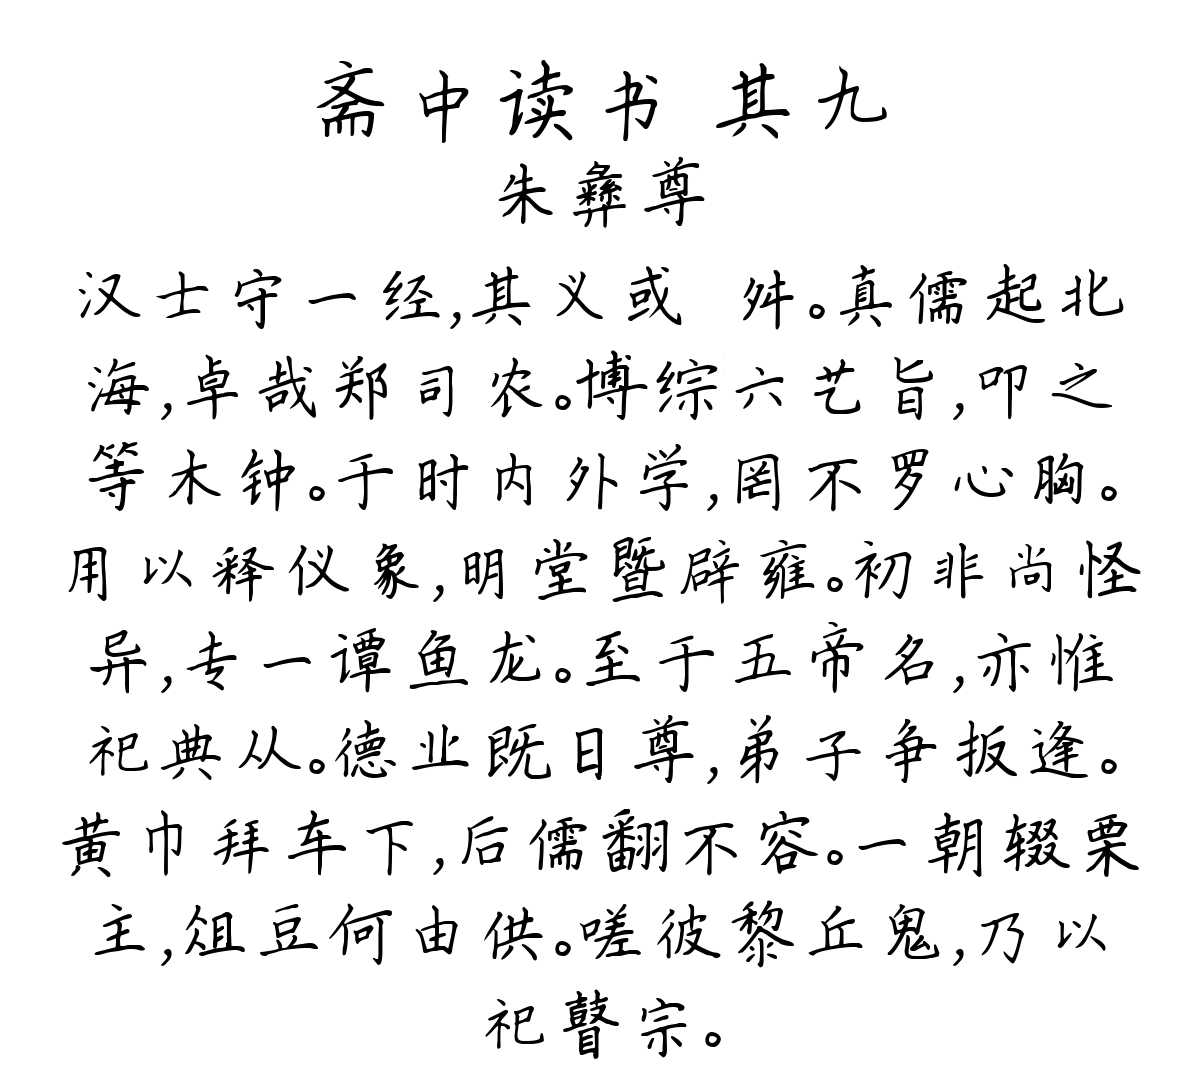 斋中读书 其九
朱彝尊
汉士守一经,其义或 舛。真儒起北
海,卓哉郑司农。博综六艺旨,叩之
等木钟。于时内外学,罔不罗心胸。
用以释仪象,明堂暨辟雍。初非尚怪
异,专一谭鱼龙。至于五帝名,亦惟
祀典从。德业既日尊,弟子争扳逢。
黄巾拜车下,后儒翻不容。一朝辍栗
主,俎豆何由供。嗟彼黎丘鬼,乃以
祀瞽宗。